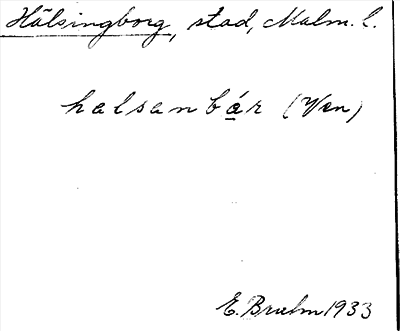 Hälsingborg, stad, Malm. l.
halsanbár (Ven)
E. Bruhm 1933